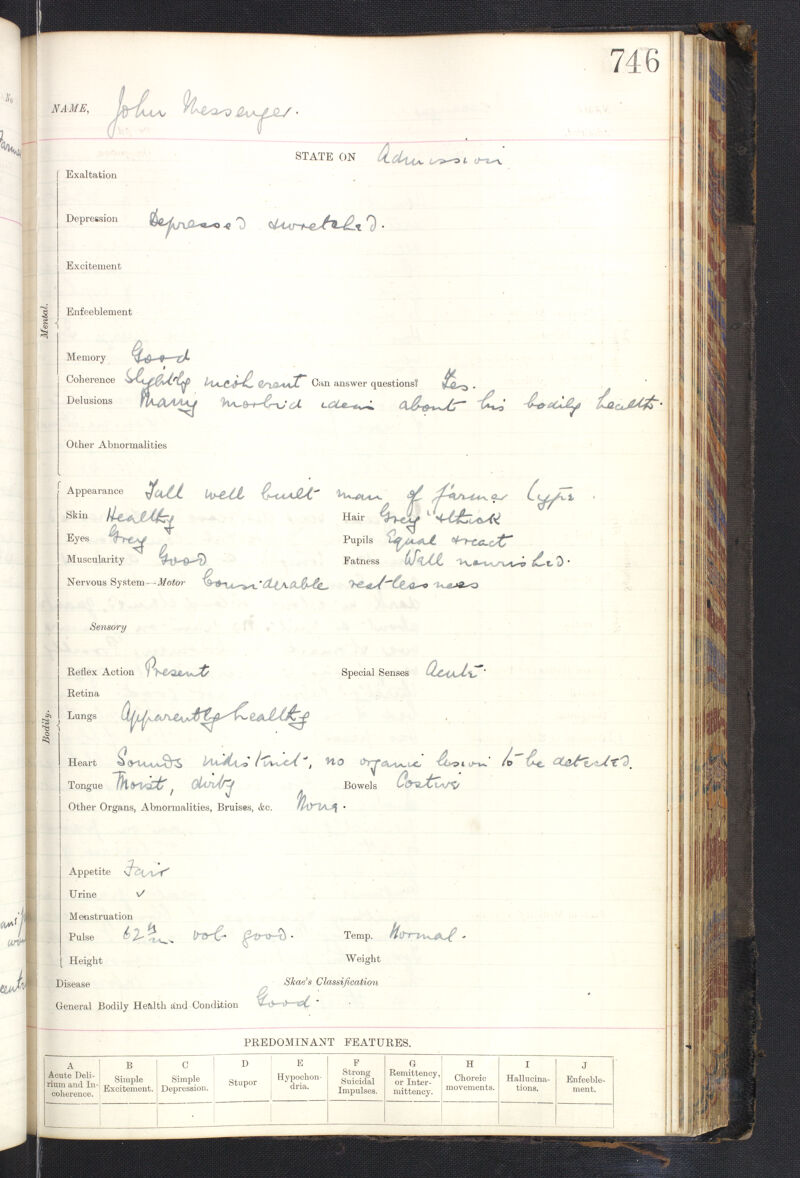 746
NAME, John Messenger.
STATE ON Admission
Mental.
Exaltation
Depression Depressed & wretched.
Excitement
Enfeeblement
Memory Good
Coherence Slightly incoherent Can answer questions? Yes.
Delusions Many morbid ideas about his bodily health.
Other Abnormalities
Bodily.
Appearance Tall well built man of farmer type.
Skin Healthy Hair Grey & thick
Eyes Grey Pupils Equal & react
Muscularity Good Fatness Well nourished.
Nervous System—Motor Considerable restlessness
Sensory
Reflex Action Present Special Senses Acute.
Retina
Lungs Apparently healthy
Heart Sounds indistinct, no organic lesion to be detected.
Tongue Moist, dirty Bowels Costive
Other Organs, Abnormalities, Bruises, &c. None.
Appetite Fair
Urine ✓
Menstruation
Pulse vol. good. Temp. Normal.
Height Weight
Disease Skae's Classification
General Bodily Health and Condition Good.
PREDOMINANT FEATURES.
A B C D E F G H I J
Acute Delirium and Incoherence. Simple Excitement. Simple Depression. Stupor Hypochondria. Strong Suicidal Impulses. Remittency, or Intermittency. Choreic movements. Hallucinations. Enfeeblement.